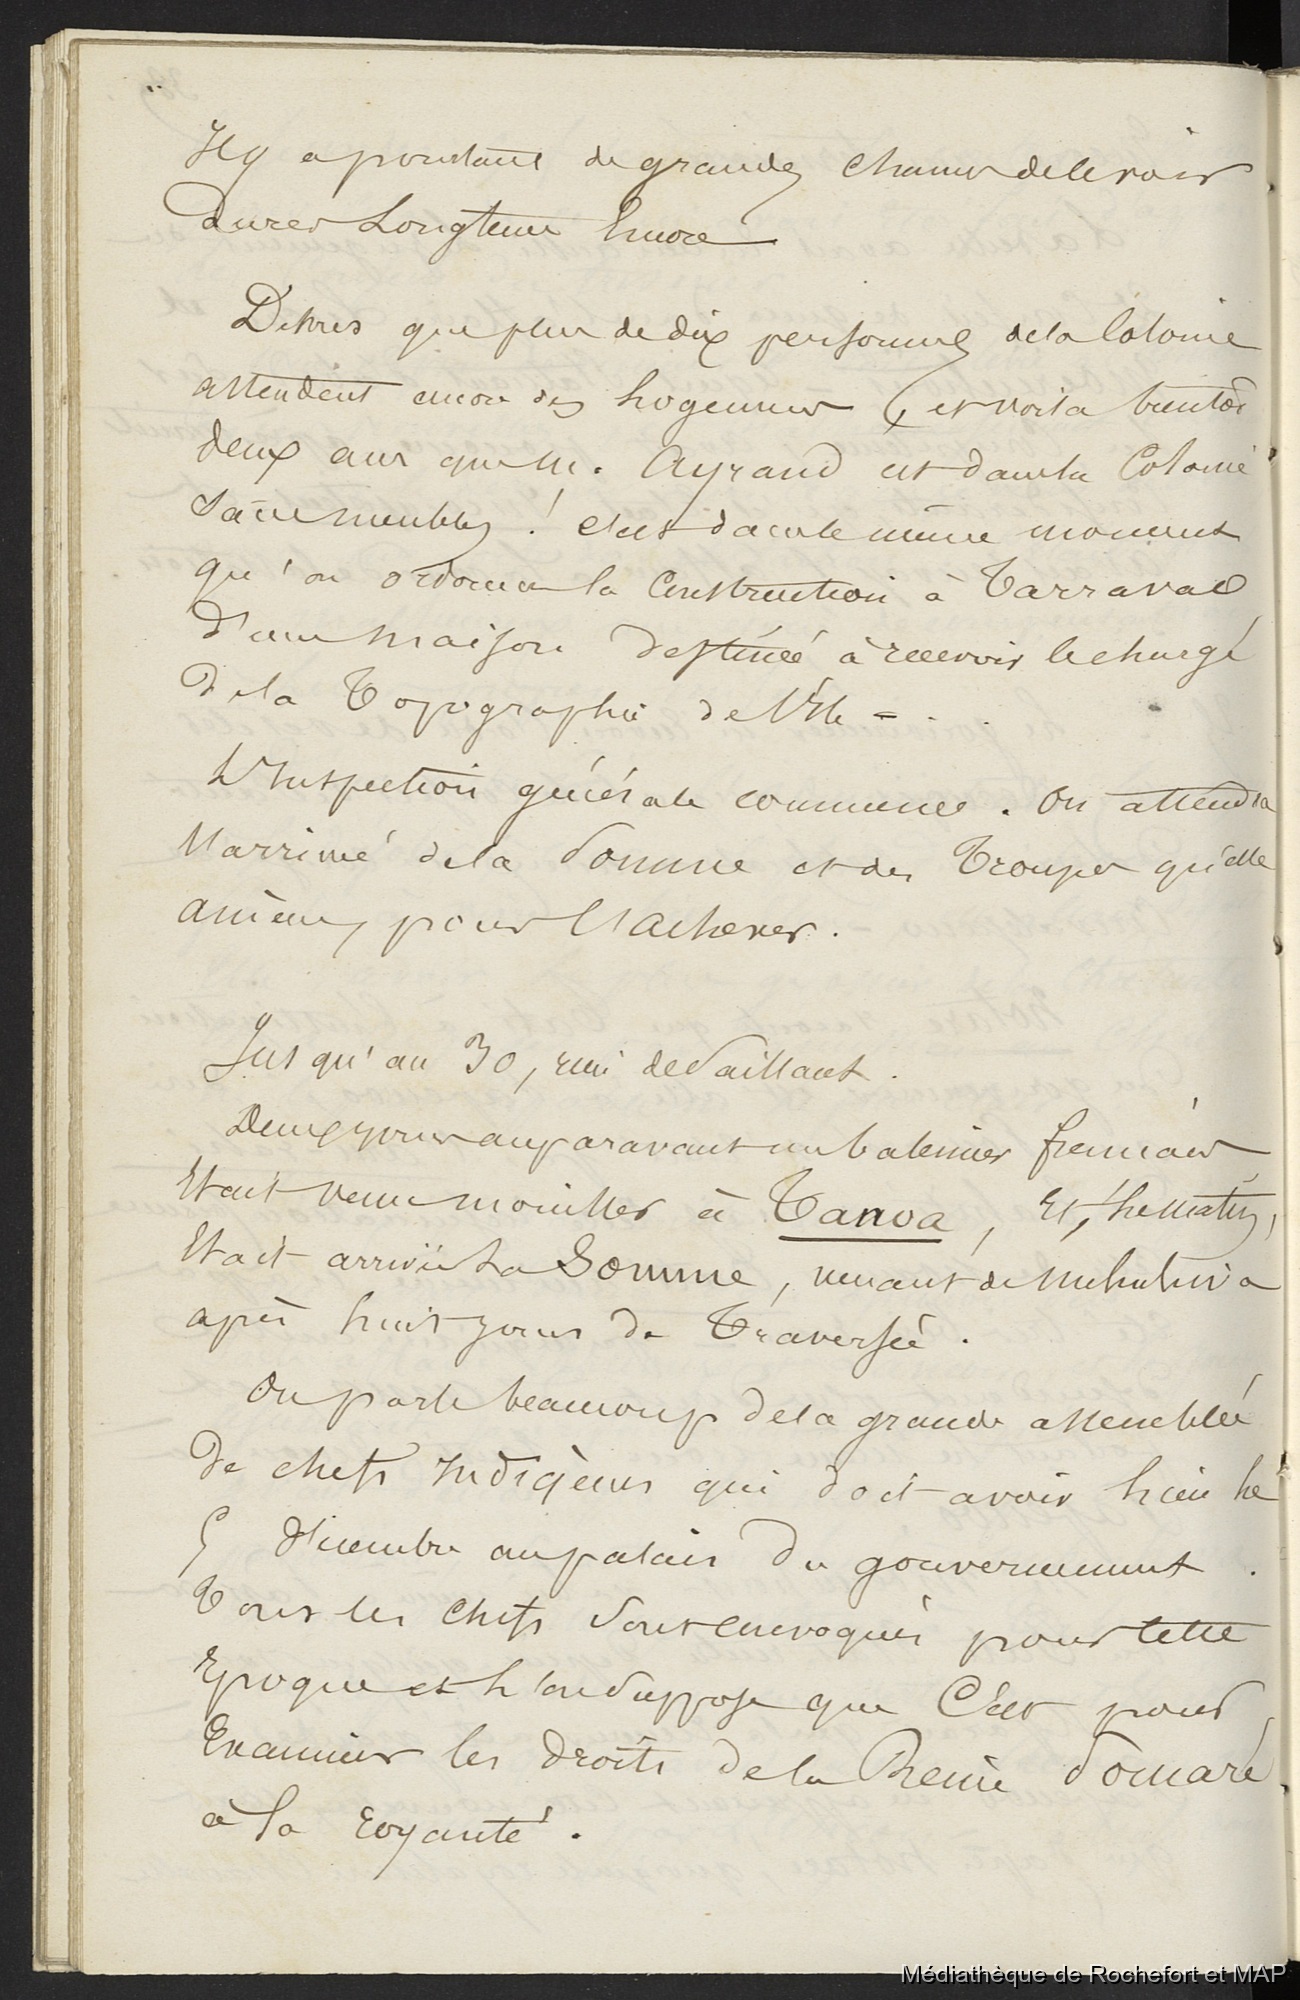 Il y a pourtant de grandes chances de le voir
durer Longtems Encore
Detres que plus de dix personnes de la Colonie
attendent encore des logemens (et voila bientôt
deux ans que M. Ayraud est dans la Colonie
Sans meubles ! c'est dans le même moment
qu'on ordonne la Construction à Tarravao
d'une maison destinée à recevoir le chargé
de la Topographie de l'Ile = . .
L'Inspection générale commence. On attendra
l'arrivée de la Somme et des Troupes qu'elle
amène, pour l'achever.
Jusqu'au 30, rien de Saillant.
Deux jours auparavant un baleinier francais
Etait venu mouiller à Tanoa, Et, Le Matin,
Etait arrivée La Somme, venant de
après huit jours de Traversée.
On parle beaucoup de la grande assemblée
de chefs Indigènes qui doit avoir lieu le
5 décembre au palais du gouvernement.
Tous les Chefs Sont Convoqués pour cette
Epoque et L'on Suppose que C'est pour
Examiner les droits de la Reine Pomaré
à la royauté.
Médiathèque de Rochefort et MAP